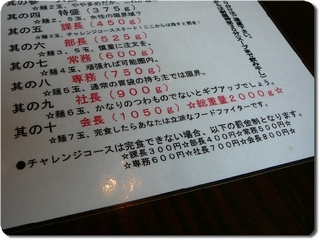 其の四 特盛(375g)
其の五 課長(450g)
※麺3玉、チャレンジコーススタート!ここからは残すと罰金!
其の六 部長(525g)
其の七 常務(600g)
※麺4玉、頑張れば可能圏内。
其の八 専務(750g)
※麺5玉、通常の客袋の持ちまでは限界。
其の九 社長(900g)
※麺6玉、かなりのつわものでないとギブアップでしょう。
其の十 会長(1050g)☆総重量2000g☆
※麺7玉、完食したらあなたは立派なフードファイターです。
●チャレンジコースは完食できない場合、以下の罰金制となります。
☆課長300円☆部長400円☆常務500円☆
☆専務600円☆社長700円☆会長800円☆